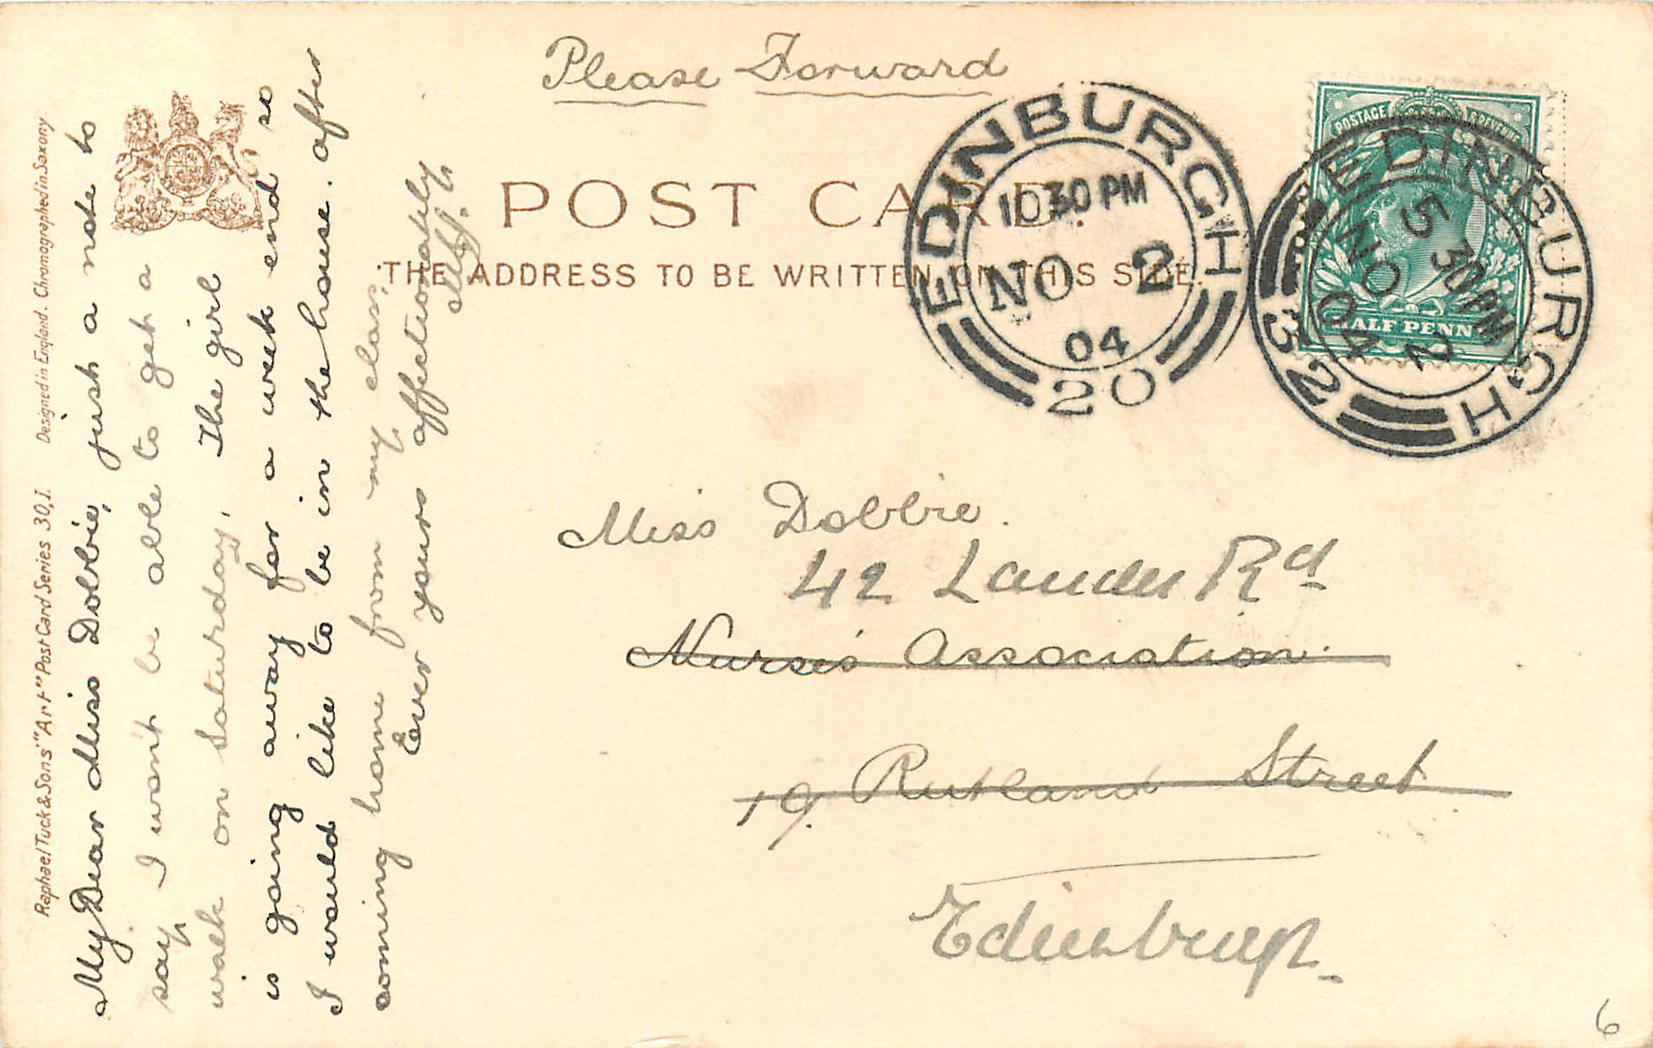 Please Forward
POST CARD.
THE ADDRESS TO BE WRITTEN ON THIS SIDE.
EDINBURGH
10 30 PM
NO 2
04
20
POSTAGE & REVENUE
HALF PENNY
EDINBURGH
5 30 PM
NO 2
04
32
Raphael Tuck & Sons' "Art" Post Card Series 30,I. Designed in England. Chromographed in Saxony
My Dear Miss Dobbie, just a note to
say I won't be able to get a
walk on Saturday. The girl
is going away for a week end so
I would like to be in the house. after
coming home from my class.
Ever yours affectionately
Miss Dobbie.
42 Lauder Rd
Nurses Association.
19 Rutland Street
Edinburgh.
6